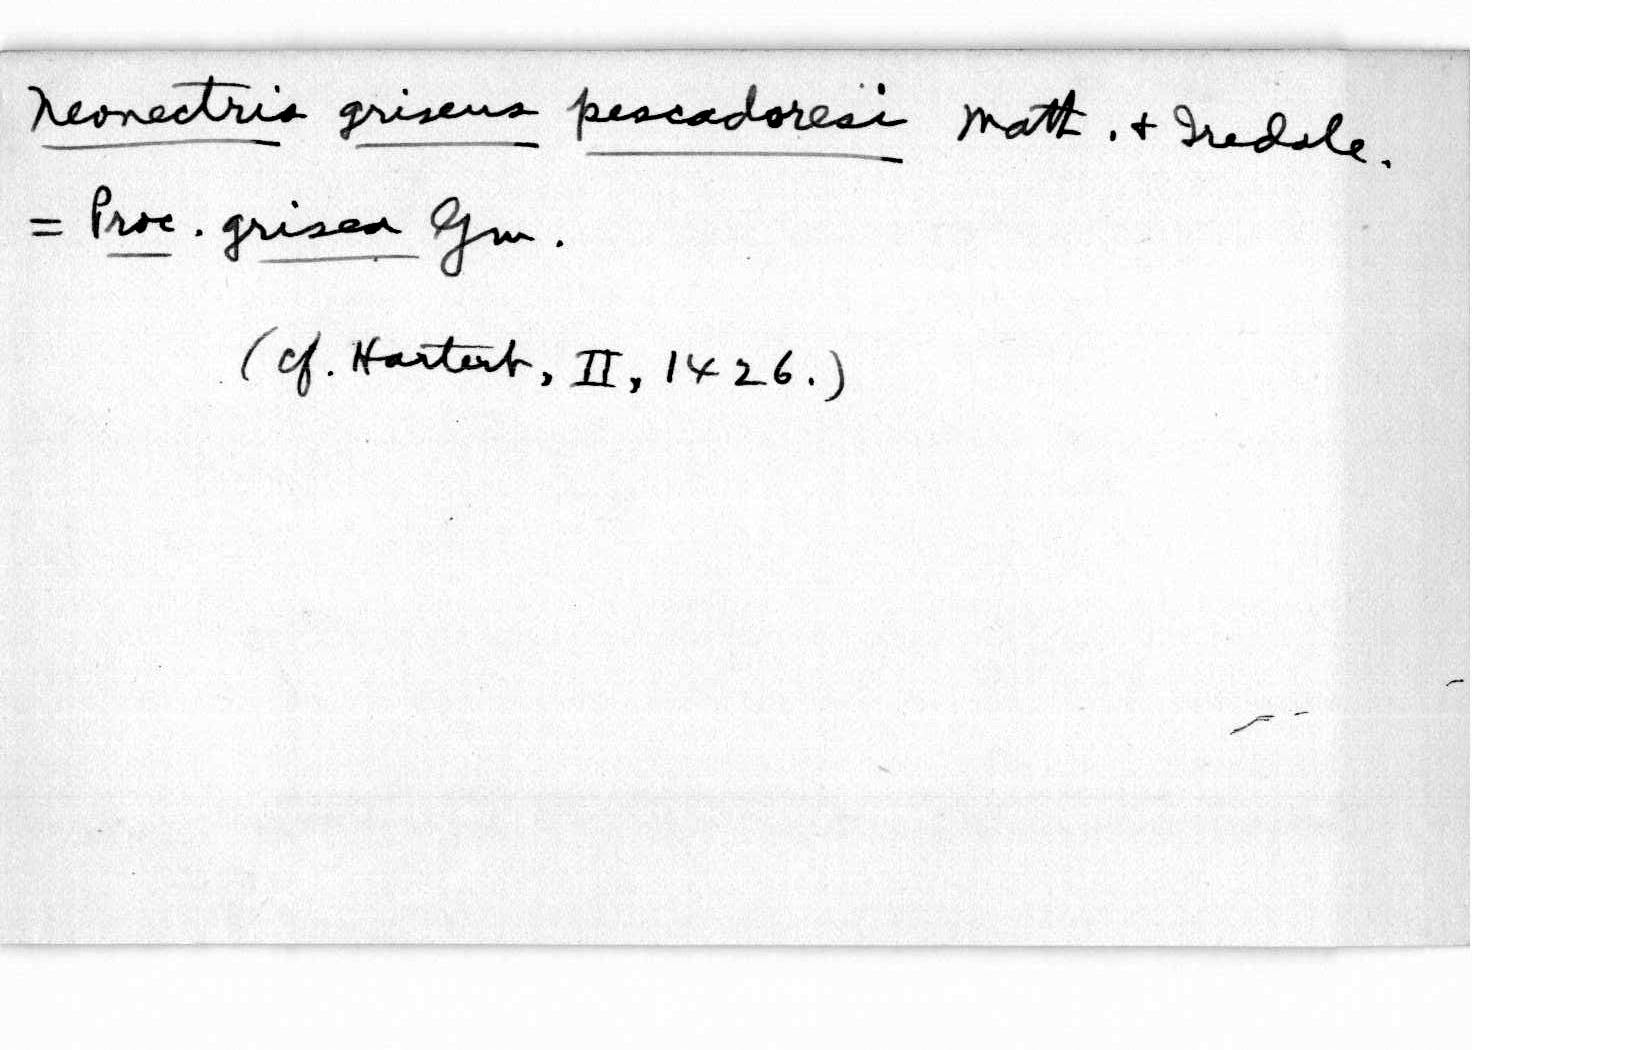 Neonectris griseus pescadoresi Math. + Iredale.
= Proc. grisea Gm.
(cf. Hartert, II, 1426.)